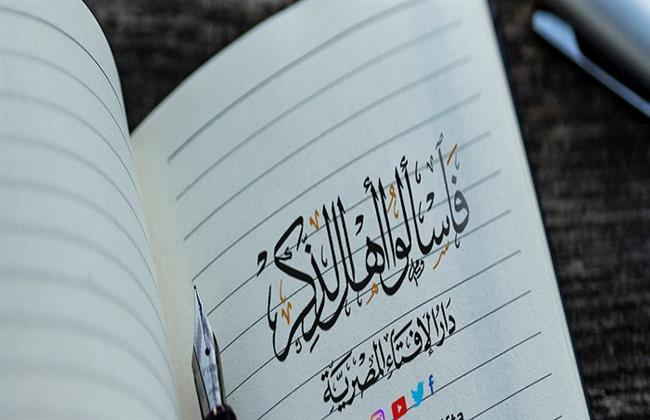 فَاسألوا أهل الذِّكرِ
دَارُ الإفتَاء المِصْريَّة